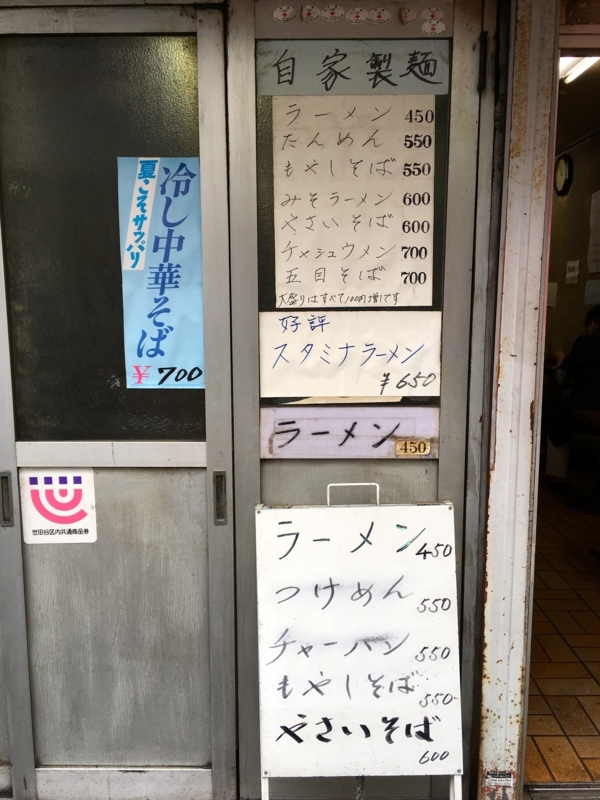 夏こそサッパリ
冷し中華そば
¥700
世田谷区内共通商品券
自家製麺
ラーメン 450
たんめん 550
もやしそば 550
みそラーメン 600
やさいそば 600
チャシュウメン 700
五目そば 700
大盛りはすべて100円増です
好評
スタミナラーメン
¥650
ラーメン 450
ラーメン 450
つけめん 550
チャーハン 550
もやしそば 550
やさいそば
600